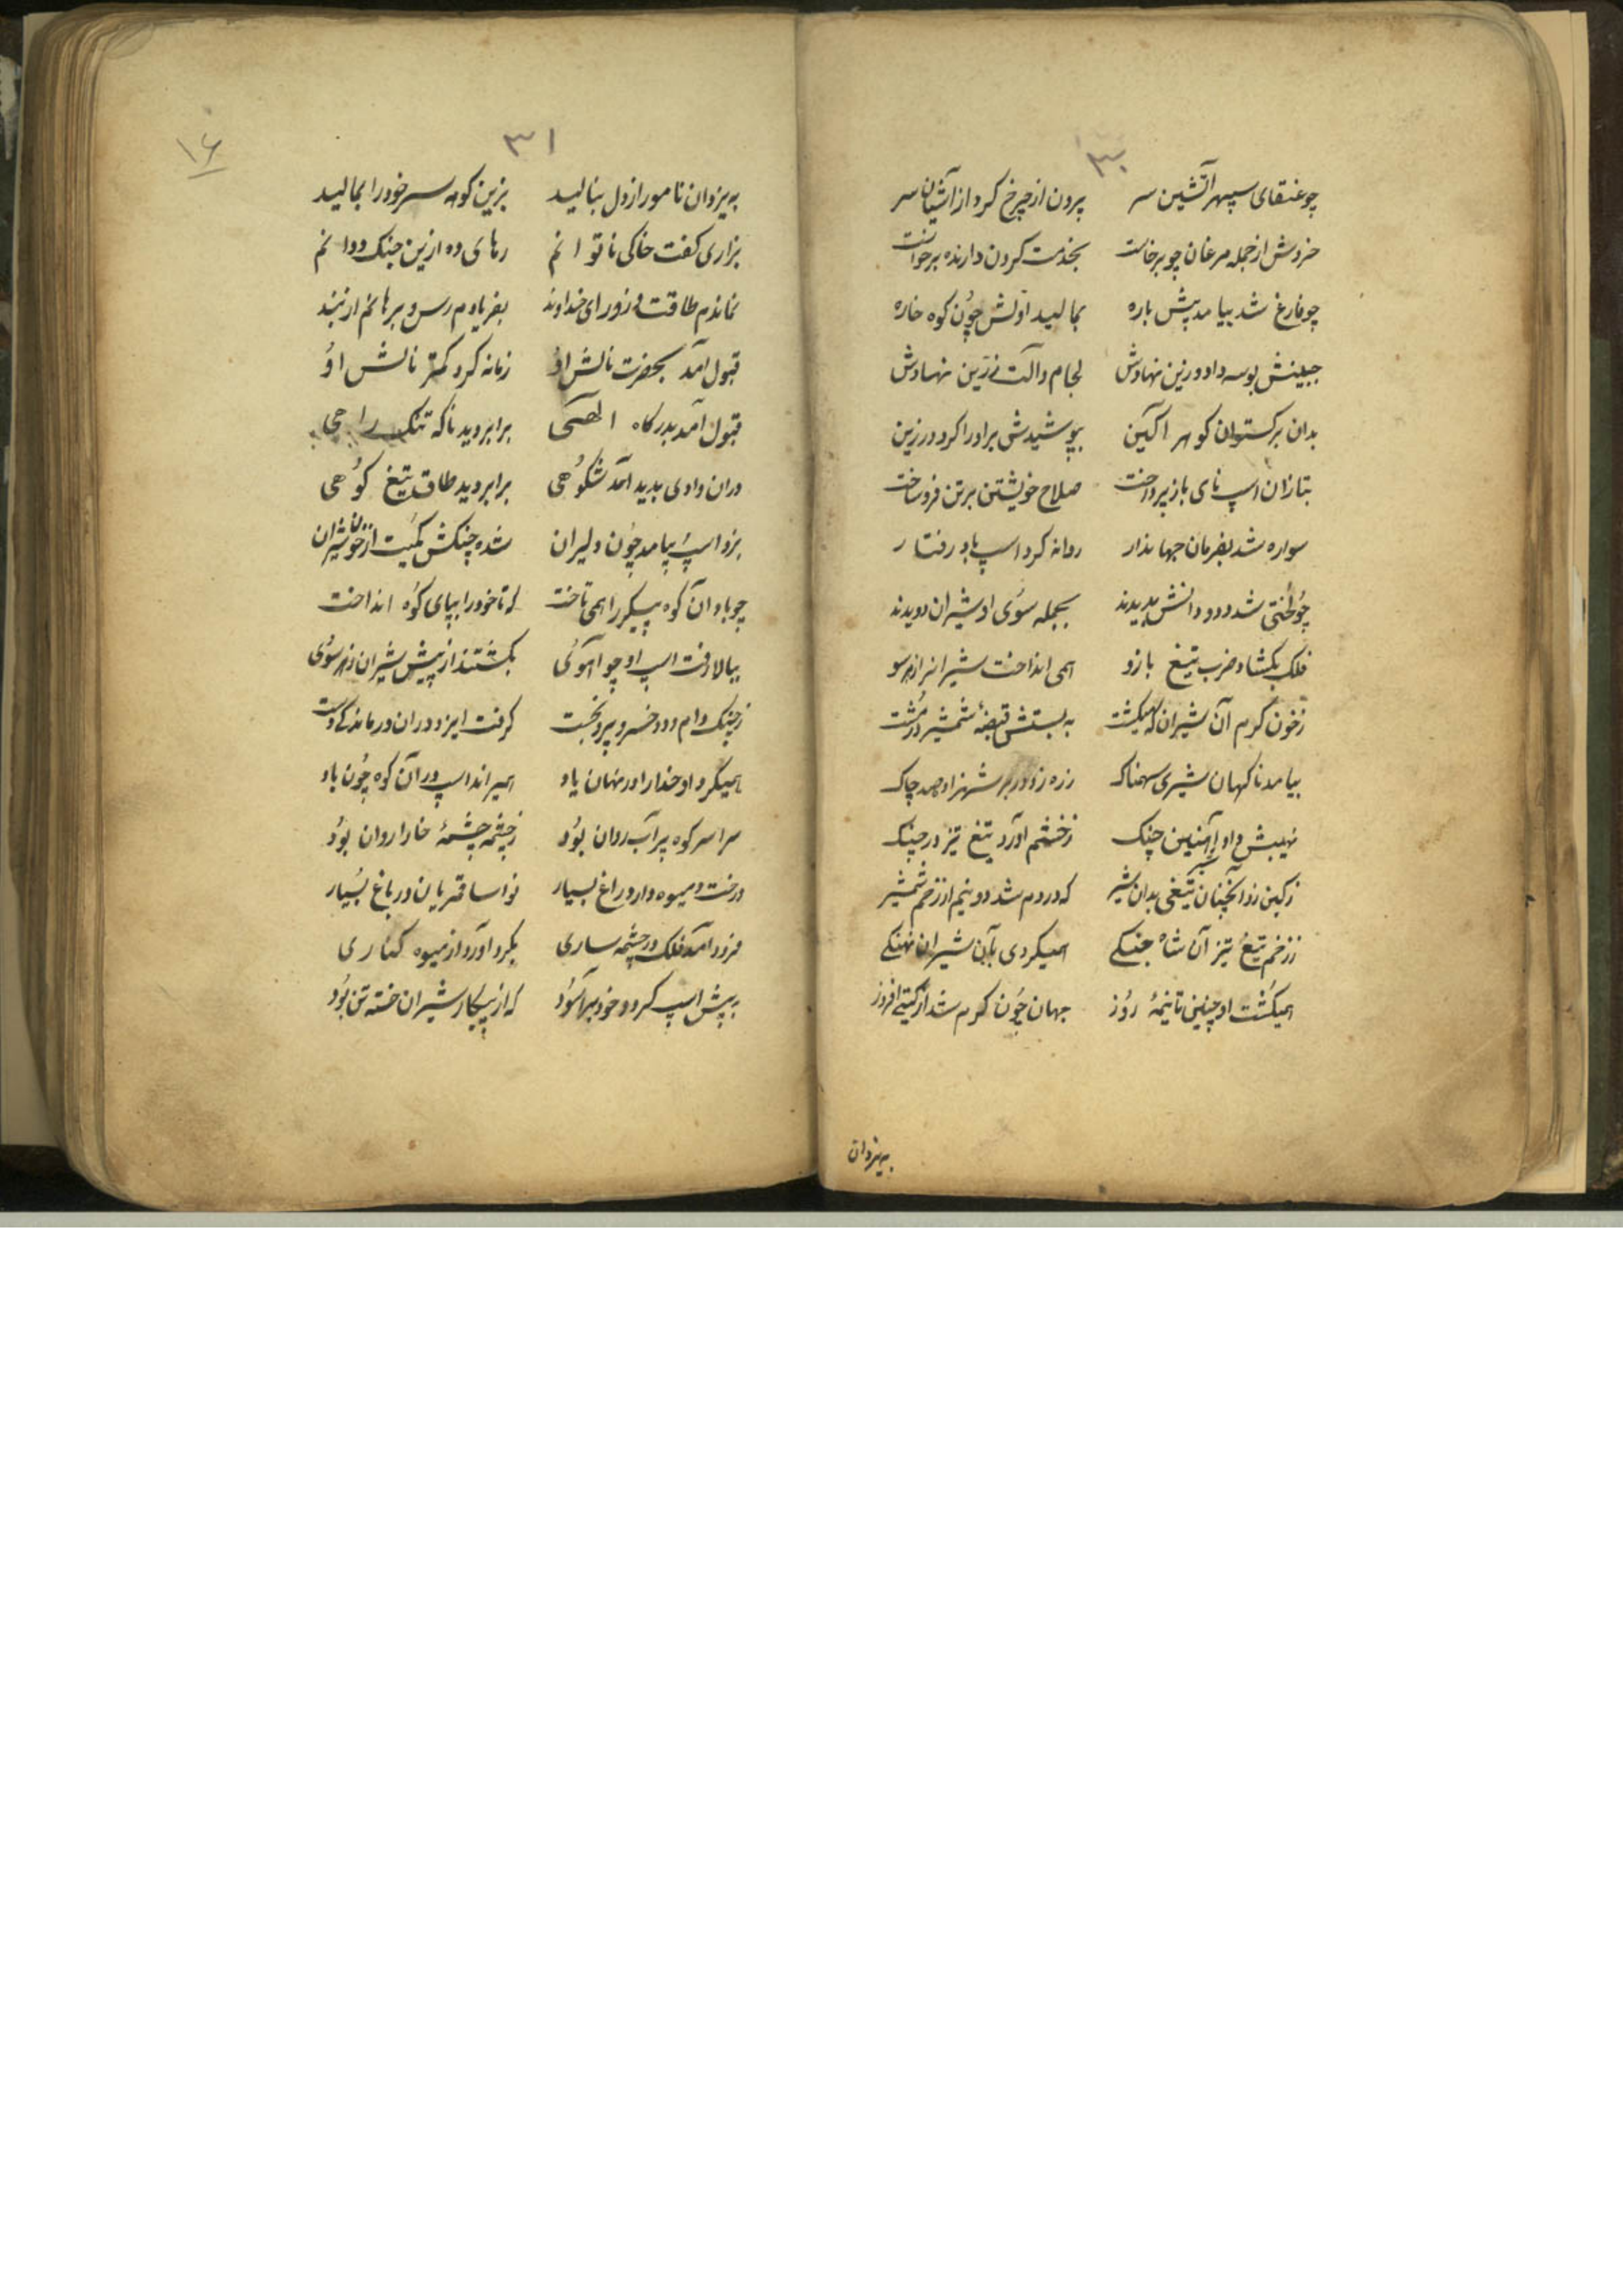 ۳۰
چو عنقای سپهر آتشین سر پرون از چرخ کرد از آشیان سر
خروش از جمله مرغان چو برخاست بخدمت کردن دارنده برخواست
چو فارغ شد بیامد پیش باره بمالید اولش چون کوه خاره
جبینش بوسه داد و زین نهادش لجام و آلت زرین نهادش
بدان برکستوان کوهر آکین بپوشیدش برادرا کرد در زین
بتازان اسپ نای باز پرداخت صلاح خویشتن برتن فرو ساخت
سواره شد بفرمان جهاندار روانه کرد اسپ باد رفتار
چو لختی شد دد و دانش بدیدند بجمله سوی او شیران دویدند
فلک بکشاد ضرب تیغ بازو همی انداخت شیرانرا زهر سو
زخون کرم آن شیران که میکشت به بستش قبضهٔ شمشیر در مشت
بیامد ناکهان شیری سهمناک زره زد در بر شهزاد صد چاک
نهیبش داد آهنین چنک زخشم آورد تیغ تیز در چنک
زکین زد آنچنان تیغی بدان شیر که در دم شد دو نیم از زخم شمشیر
ززخم تیغ تیز آن شاه جنکی همیکردی بآن شیران نهنکی
همیکشت او چنین تا نیمهٔ روز جهان چون کرم شد از کیتی افروز
به یزدان
۳۱
۱۶
به یزدان نامور از دل بنالید بزین کوهه سر خود را بمالید
بزاری کفت خاکی ناتوانم رهای ده ازین جنک و دوانم
نماندم طاقت و زور ای خداوند بفریادم رس و برهانم از بند
قبول آمد بحضرت نالش او زمانه کرد کمتر نالش او
قبول آمد بدرکاه الهی برابر دید ناکه تنک راهی
دران وادی بدید آمد شکوهی برابر دید طاق تیغ کوهی
بزد اسپ بیامد چون دلیران شده چنکش کمیت از خون شیران
چو باد آن کوه پیکر را همی تاخت که تا خود را بپای کوه انداخت
ببالا رفت اسپ او چو آهوئی بکشتند از پیش شیران زهر سوی
زچنک دام و دد خسرو برو نجست کرفت ایزد دران درماندکی دست
همیکرد او خدا را در نهان یاد همیراند اسپ در آن کوه چون باد
سراسر کوه پر آب روان بود زچشمه چشمهٔ خارا روان بود
درخت میوه دار و راغ بسیار نوا سا قمریان در باغ بسیار
فرود آمد فلک در چشمه ساری بکرد آورد از میوه کناری
به پیش اسپ کرد و خود برآسود که از پیکار شیران خسته تن بود